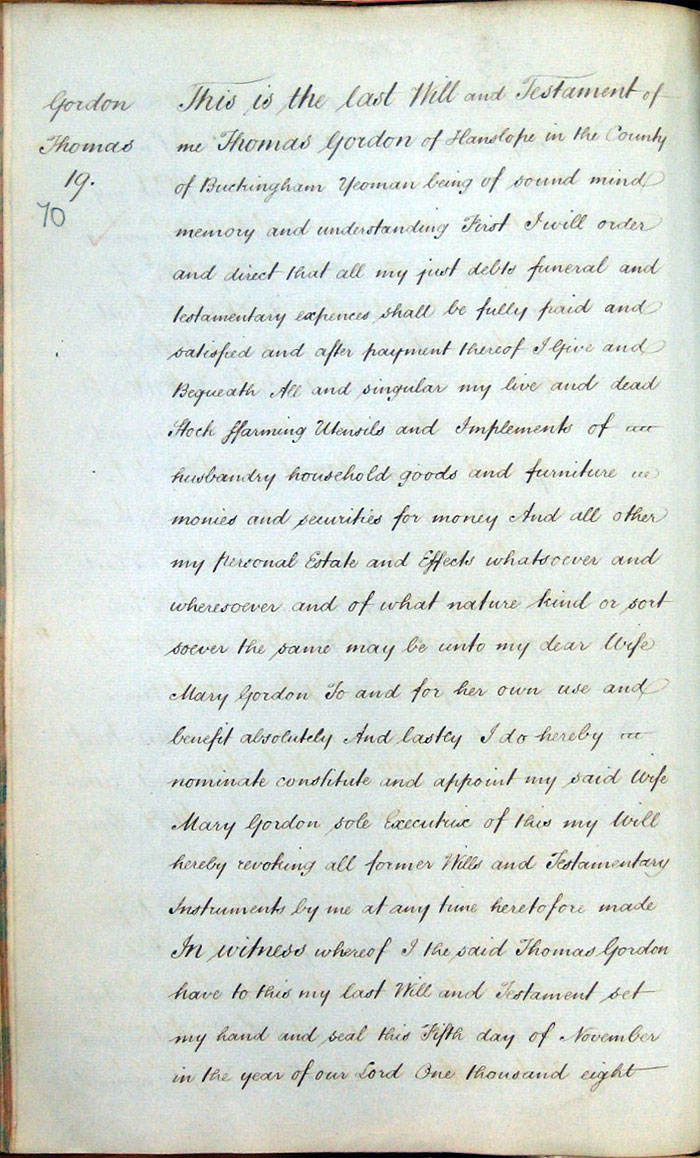 Gordon
Thomas
19.
70
This is the last Will and Testament of
me Thomas Gordon of Hanslope in the County
of Buckingham Yeoman being of sound mind
memory and understanding First I will order
and direct that all my just debts funeral and
testamentary expences shall be fully paid and
satisfied and after payment thereof I Give and
Bequeath All and singular my live and dead
Stock ffarming Utensils and Implements of
husbandry household goods and furniture
monies and securities for money And all other
my Personal Estate and Effects whatsoever and
wheresoever and of what nature kind or sort
soever the same may be unto my dear Wife
Mary Gordon To and for her own use and
benefit absolutely And lastly I do hereby
nominate constitute and appoint my said Wife
Mary Gordon sole Executrix of this my Will
hereby revoking all former Wills and Testamentary
Instruments by me at any time heretofore made
In witness whereof I the said Thomas Gordon
have to this my last Will and Testament set
my hand and seal this Fifth day of November
in the year of our Lord One thousand eight